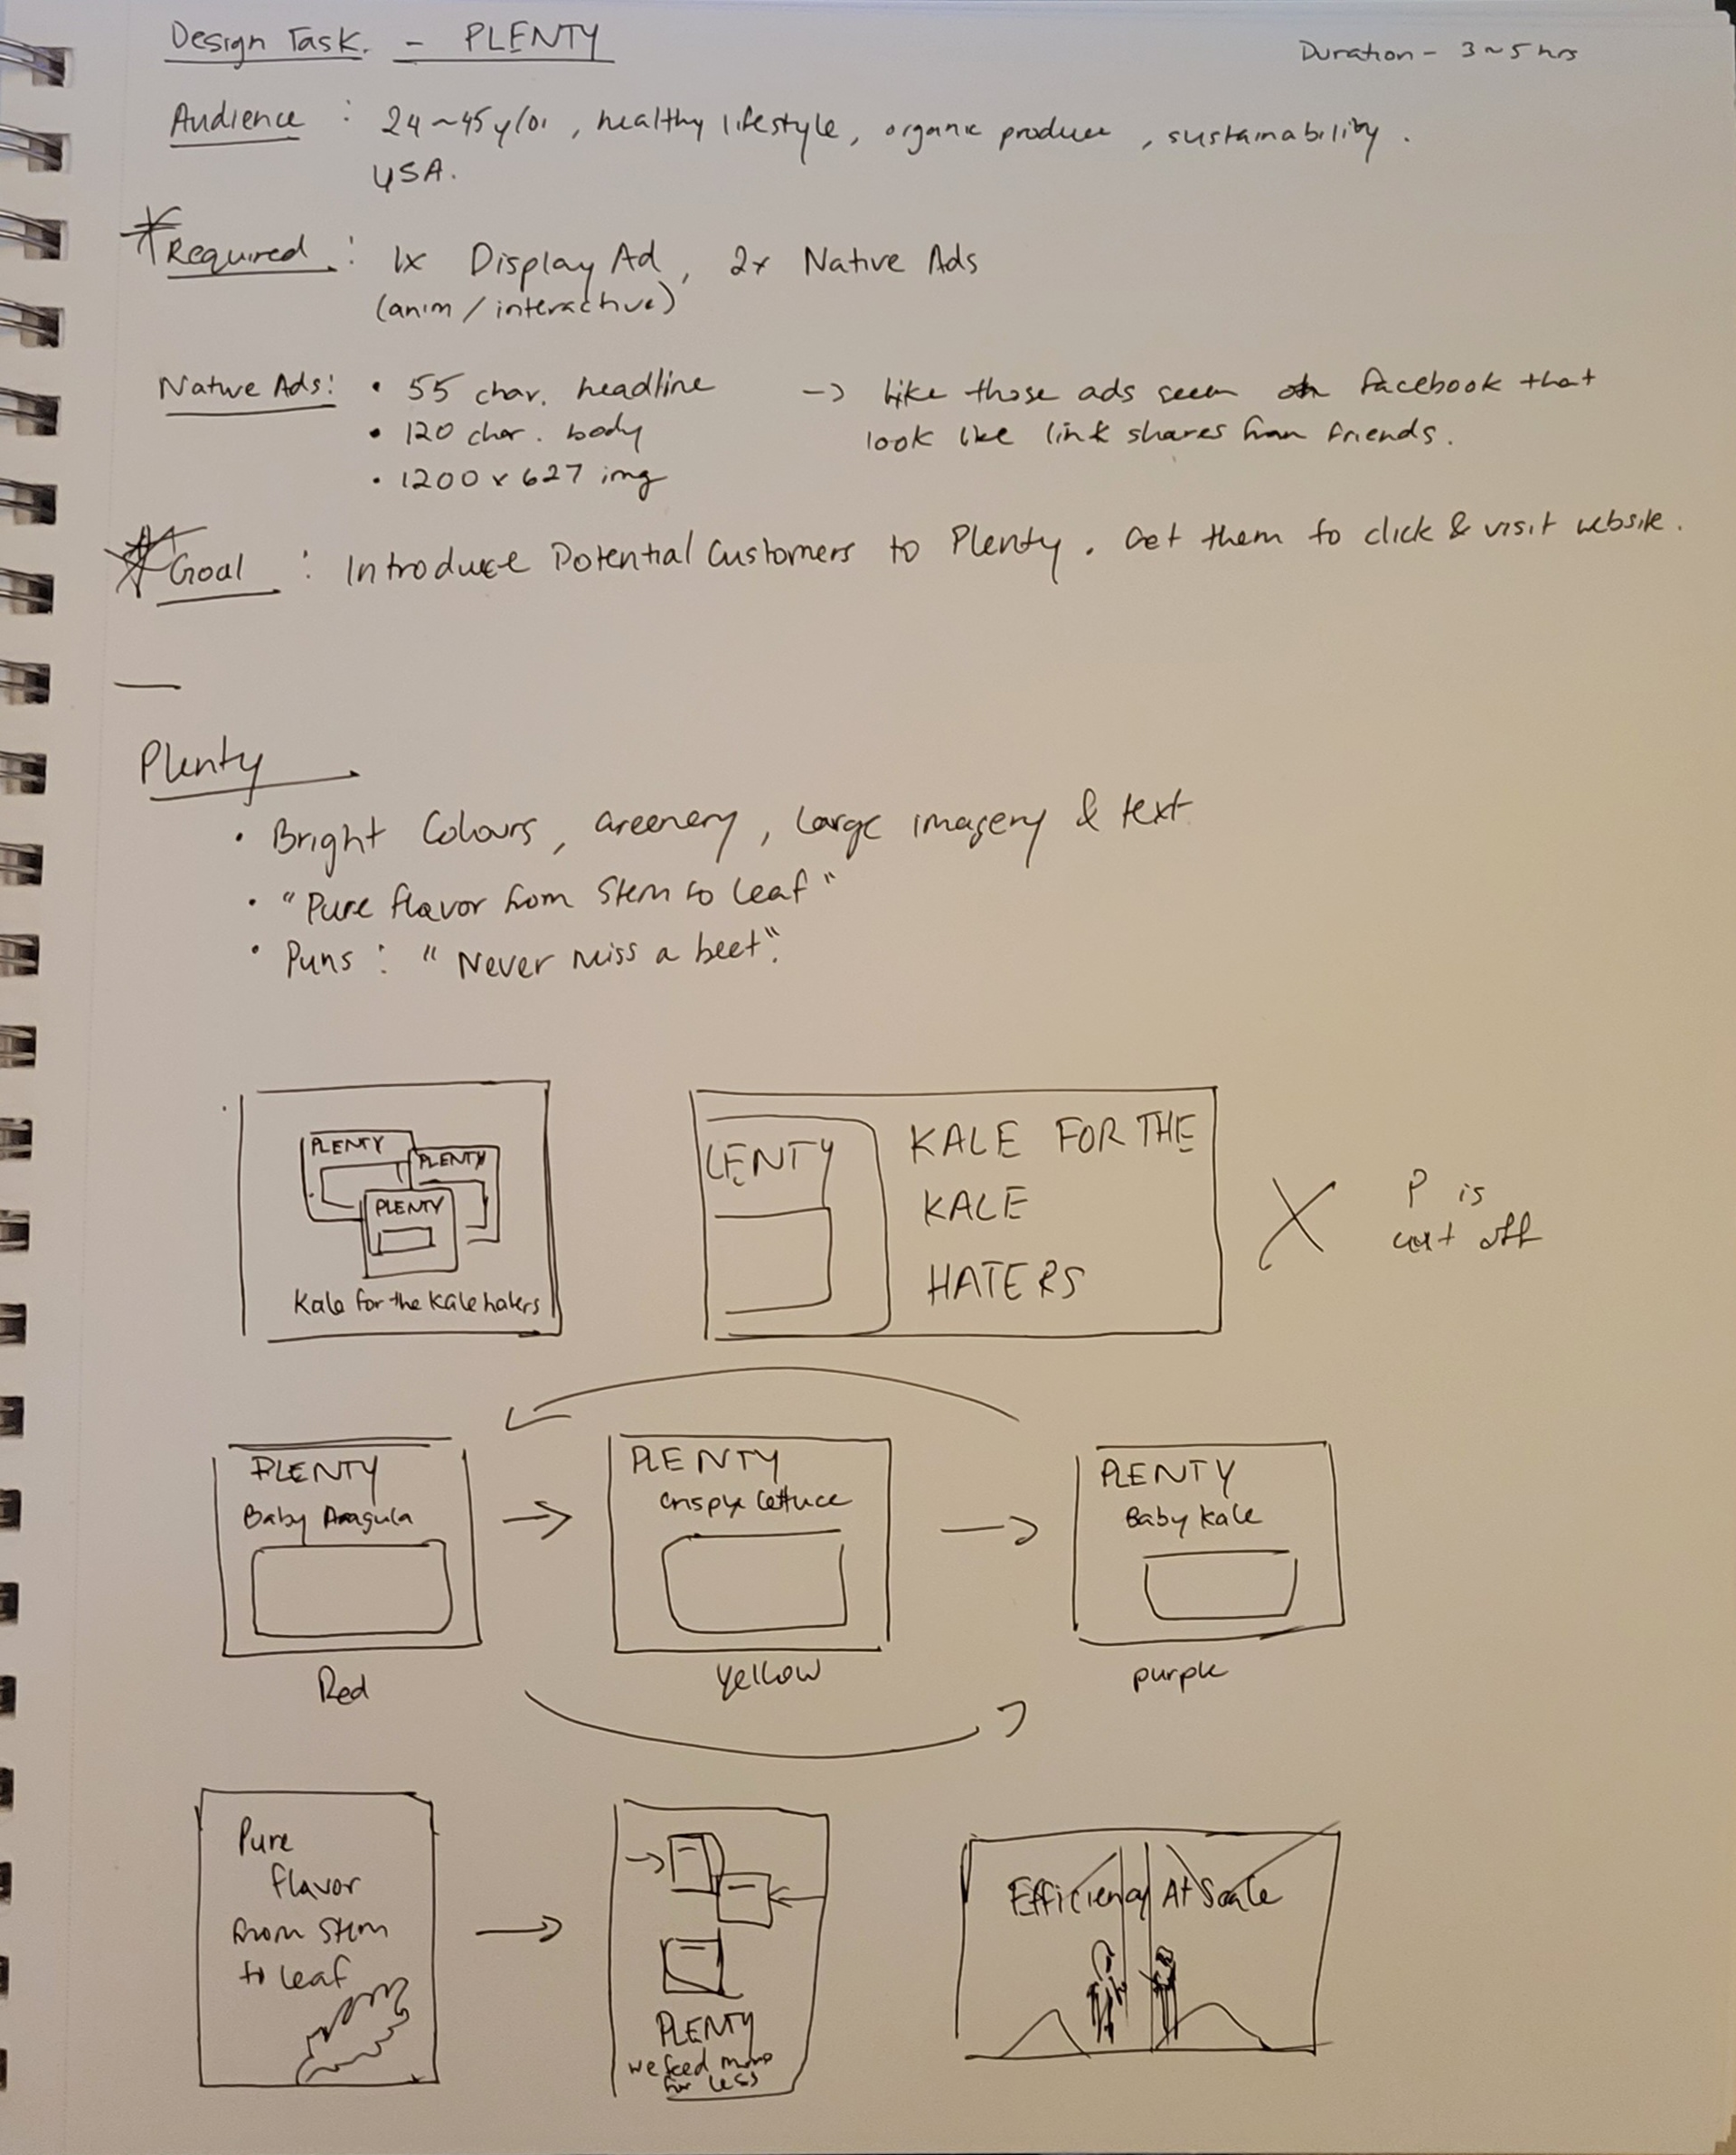 Design Task. - PLENTY
Duration - 3~5 hrs
Audience : 24~45 y/o, healthy lifestyle, organic produce, sustainability.
USA.
Required : 1x Display Ad, 2x Native Ads
(anim / interactive)
Native Ads: • 55 char. headline → like those ads seen on facebook that
• 120 char. body look like link shares from friends.
• 1200 x 627 img
Goal : Introduce Potential Customers to Plenty. Get them to click & visit website.
—
Plenty
• Bright Colours, Greenery, Large imagery & text
• "Pure flavor from Stem to leaf"
• Puns : "Never miss a beet".
PLENTY
PLENTY
PLENTY
Kale for the Kale haters
LENTY
KALE FOR THE
KALE
HATERS
X
P is
cut off
PLENTY
Baby Aragula
Red
PLENTY
Crispy Lettuce
Yellow
PLENTY
Baby Kale
purple
Pure
flavor
from Stem
to leaf
PLENTY
we feed more
for less
Efficiency At Scale